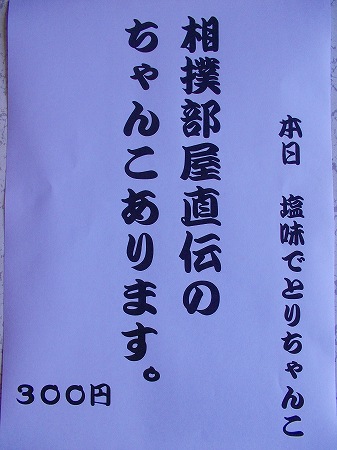 本日　塩味でとりちゃんこ
相撲部屋直伝の
ちゃんこあります。
３００円